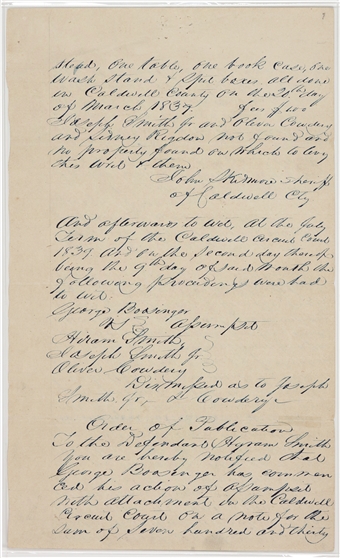 stead, one table, one book case, one
Wash Stand & Spit boxes all done
in Caldwell County on the day
of March 1837
Joseph Smith Jr and Oliver Cowdery
and Sidney Rigdon not found and
no property found on which to levy
this writ & them
John Skidmore Sheriff
of Caldwell Cty
And afterwards to wit, At the July
Term of the Caldwell Circuit Court
1839 And on the Second day thereof
being the 9th day of said Month the
following proceedings were had
to wit.
George Boosinger
vs Assumpsit
Hiram Smith,
Joseph Smith Jr
Oliver Cowdery
Dismissed as to Joseph
Smith Jr, & Cowdery
Order of Publication
To the Defendant Hyrum Smith
You are hereby notified that
George Boosinger has commen
ced his action of Assumpsit
with attachment in the Caldwell
Circuit Court on a note for the
Sum of Seven hundred and thirty